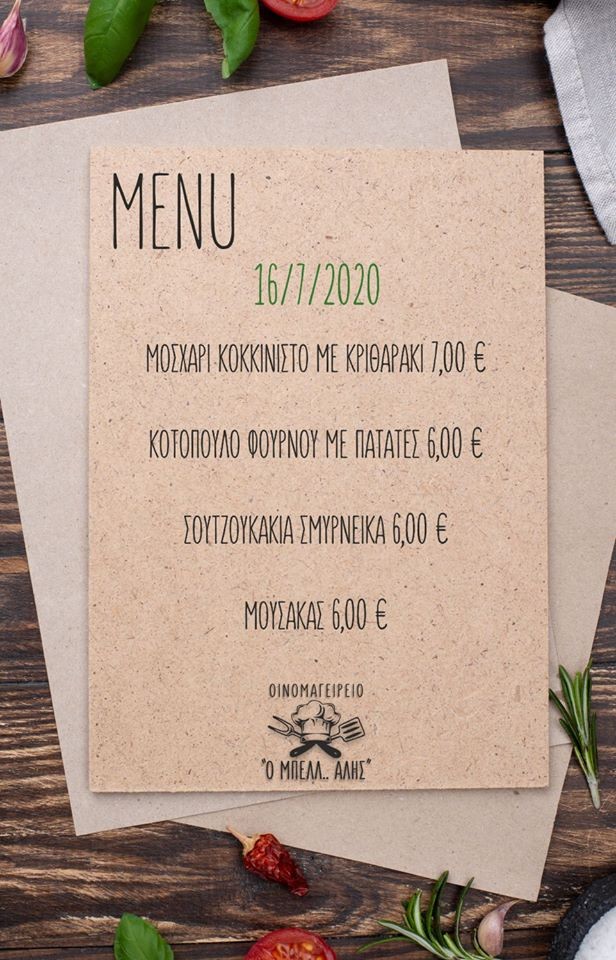 MENU
16/7/2020
ΜΟΣΧΑΡΙ ΚΟΚΚΙΝΙΣΤΟ ΜΕ ΚΡΙΘΑΡΑΚΙ 7,00 €
ΚΟΤΟΠΟΥΛΟ ΦΟΥΡΝΟΥ ΜΕ ΠΑΤΑΤΕΣ 6,00 €
ΣΟΥΤΖΟΥΚΑΚΙΑ ΣΜΥΡΝΕΙΚΑ 6,00 €
ΜΟΥΣΑΚΑΣ 6,00 €
ΟΙΝΟΜΑΓΕΙΡΕΙΟ
"Ο ΜΠΕΛΛ.. ΑΛΗΣ"